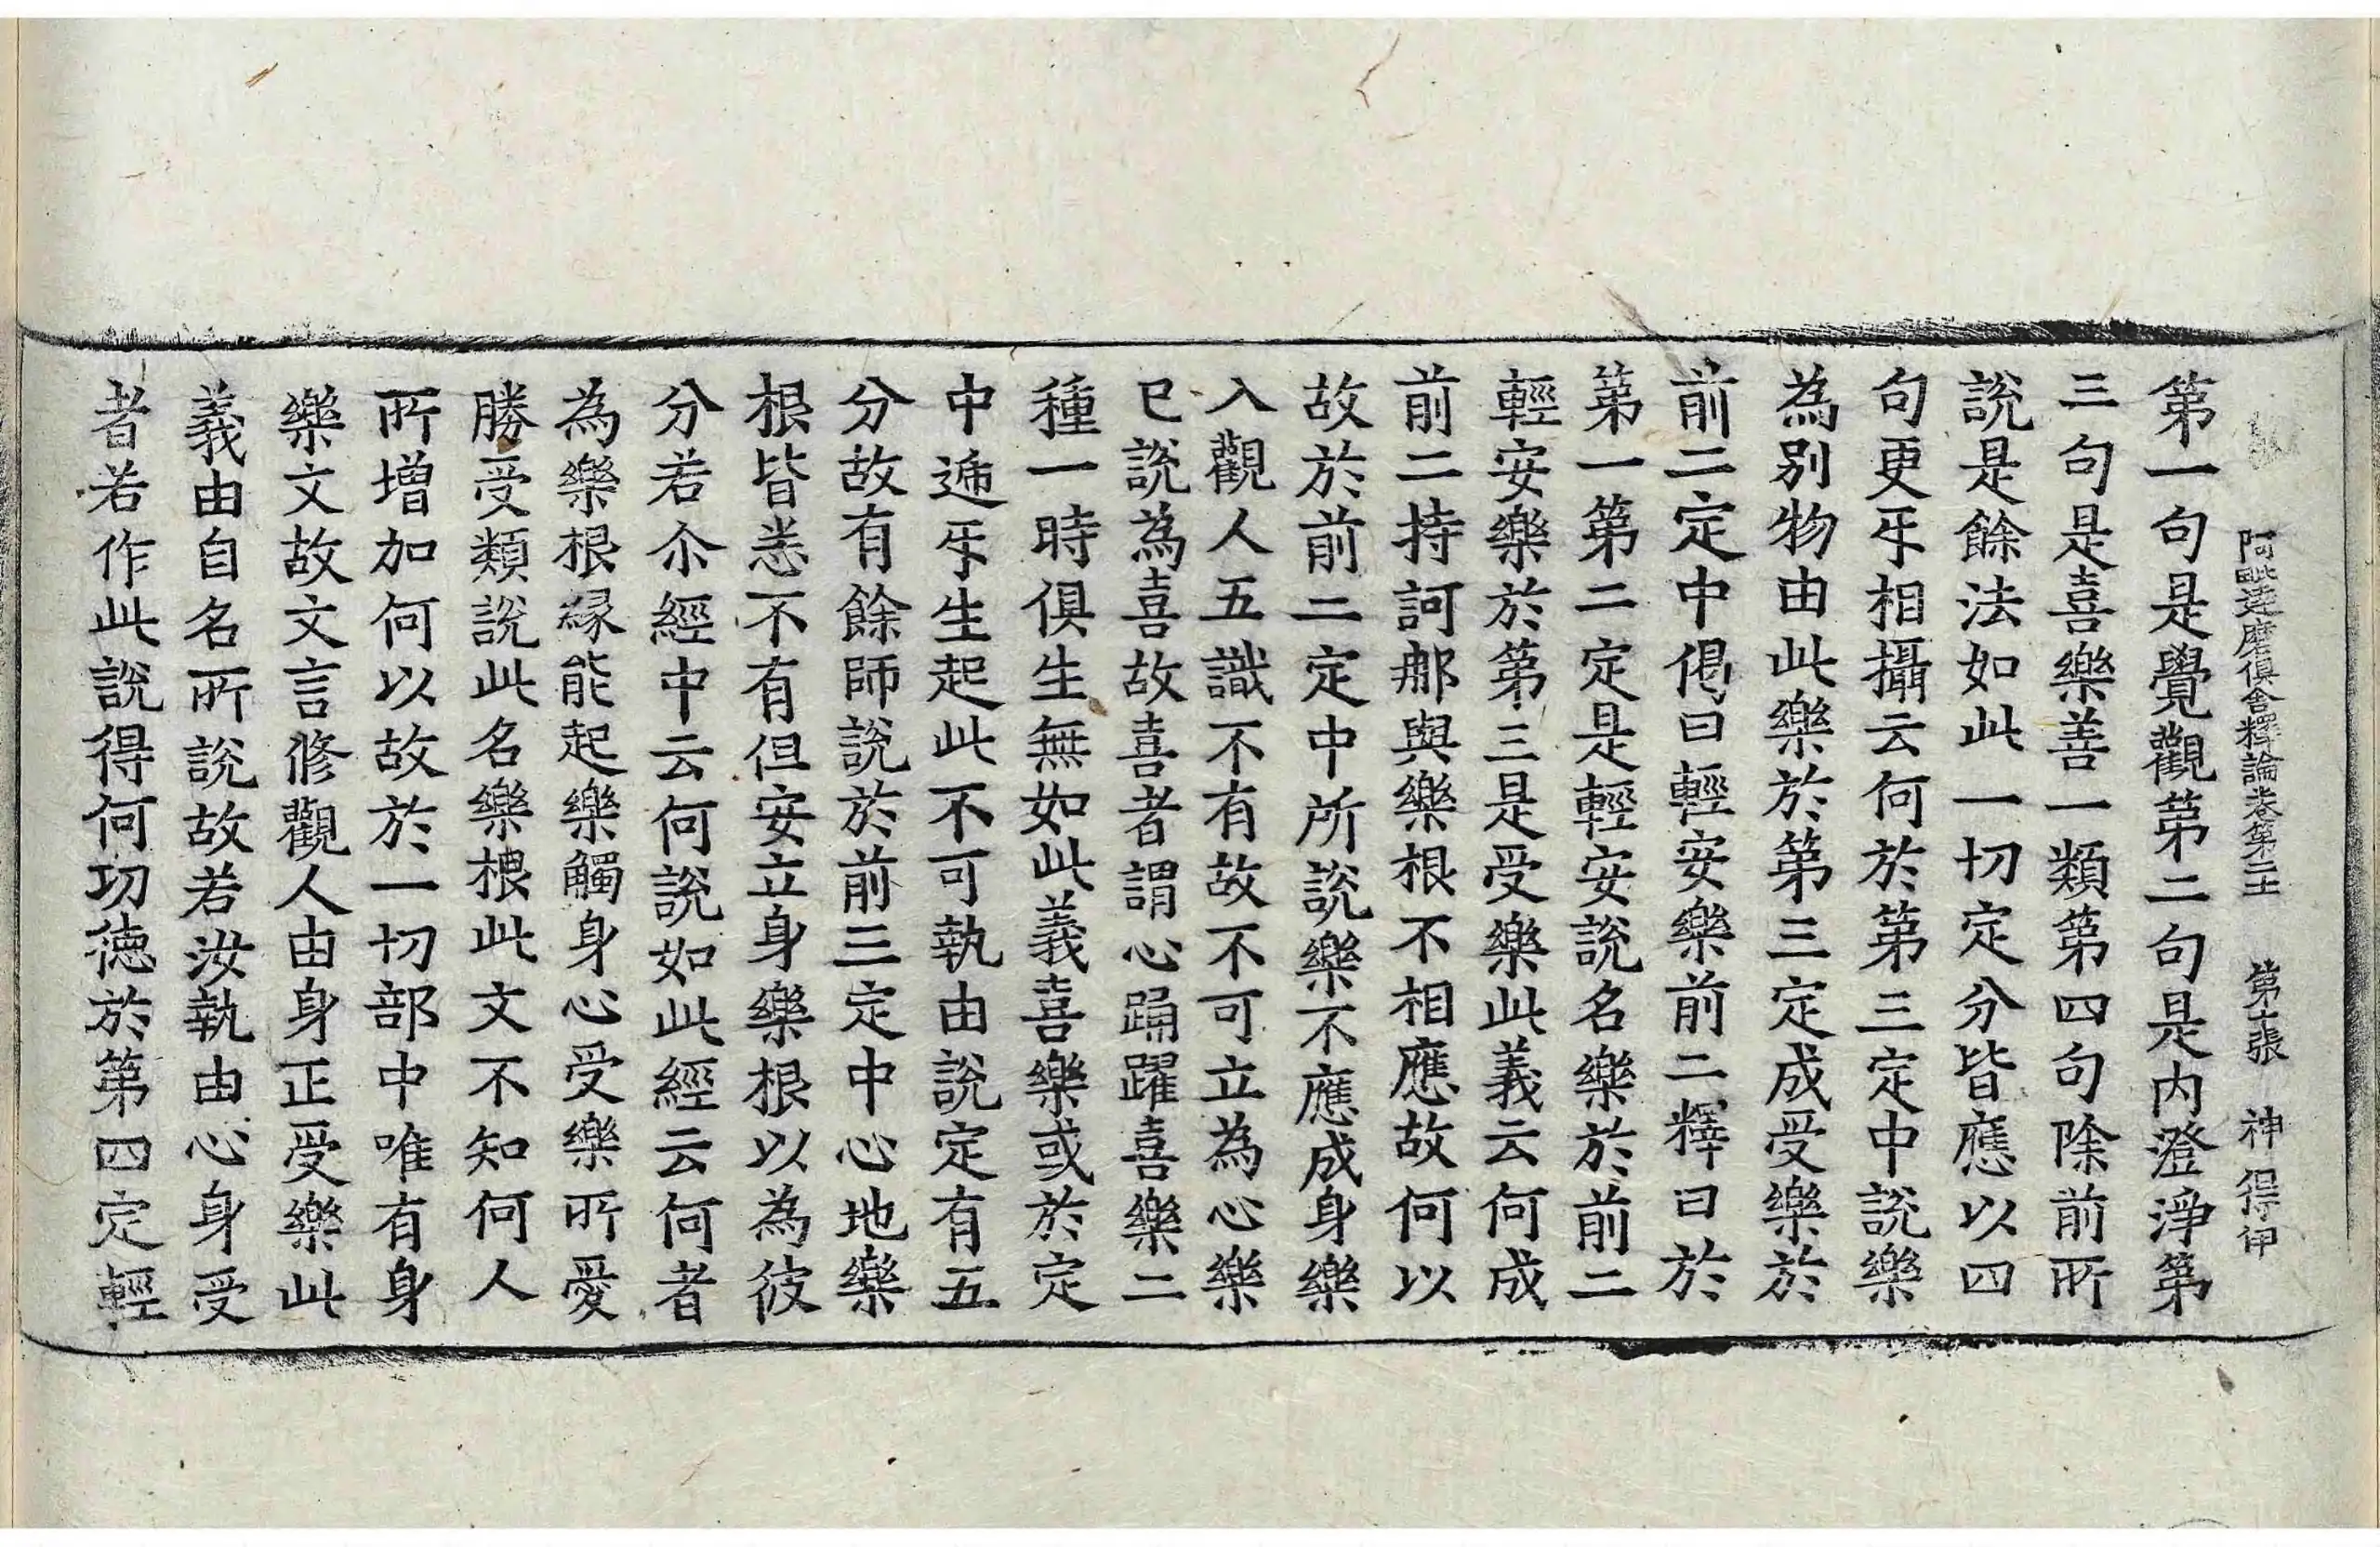 阿毗達磨俱舍釋論卷第二十一 第十張 神 得伊
第一句是覺觀第二句是内澄淨第
三句是喜樂善一類第四句除前所
說是餘法如此一切定分皆應以四
句更㸦相攝云何於第三定中說樂
為別物由此樂於第三定成受樂於
前二定中偈曰輕安樂前二釋曰於
第一第二定是輕安說名樂於前二
輕安樂於第三是受樂此義云何成
前二持訶那與樂根不相應故何以
故於前二定中所說樂不應成身樂
入觀人五識不有故不可立為心樂
已說為喜故喜者謂心踊躍喜樂二
種一時俱生無如此義喜樂或於定
中遞㸦生起此不可執由說定有五
分故有餘師說於前三定中心地樂
根皆悉不有但安立身樂根以為彼
分若尒經中云何說如此經云何者
為樂根緣能起樂觸身心受樂所愛
勝受類說此名樂根此文不知何人
所增加何以故於一切部中唯有身
樂文故文言修觀人由身正受樂此
義由自名所說故若汝執由心身受
者若作此說得何功德於第四定輕